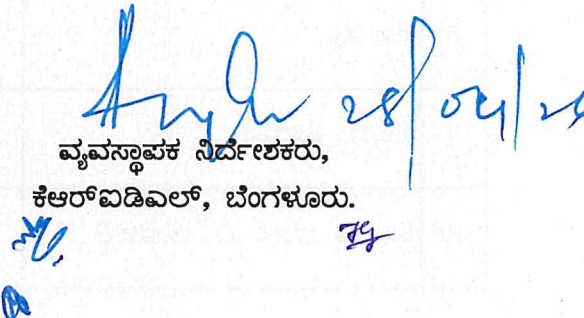 28/04/2
ವ್ಯವಸ್ಥಾಪಕ ನಿರ್ದೇಶಕರು,
ಕೆಆರ್‌ಐಡಿಎಲ್, ಬೆಂಗಳೂರು.